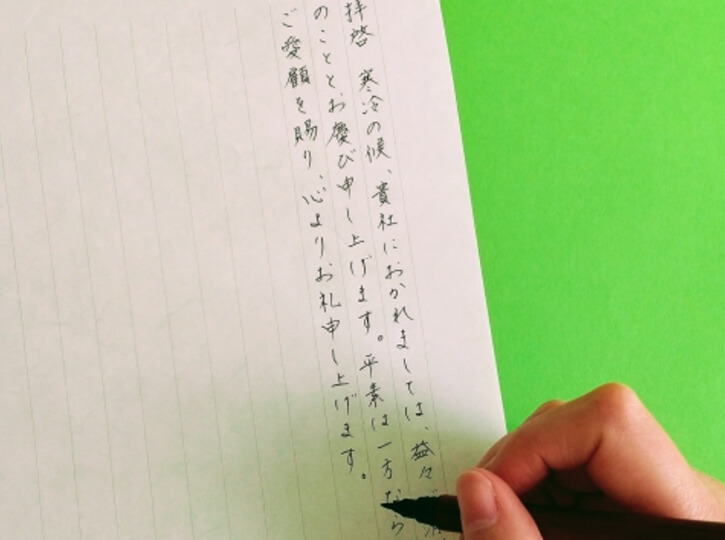 拝啓 寒冷の候、貴社におかれましては、益々ご清
のこととお慶び申し上げます。平素は一方なら
ご愛顧を賜り、心よりお礼申し上げます。